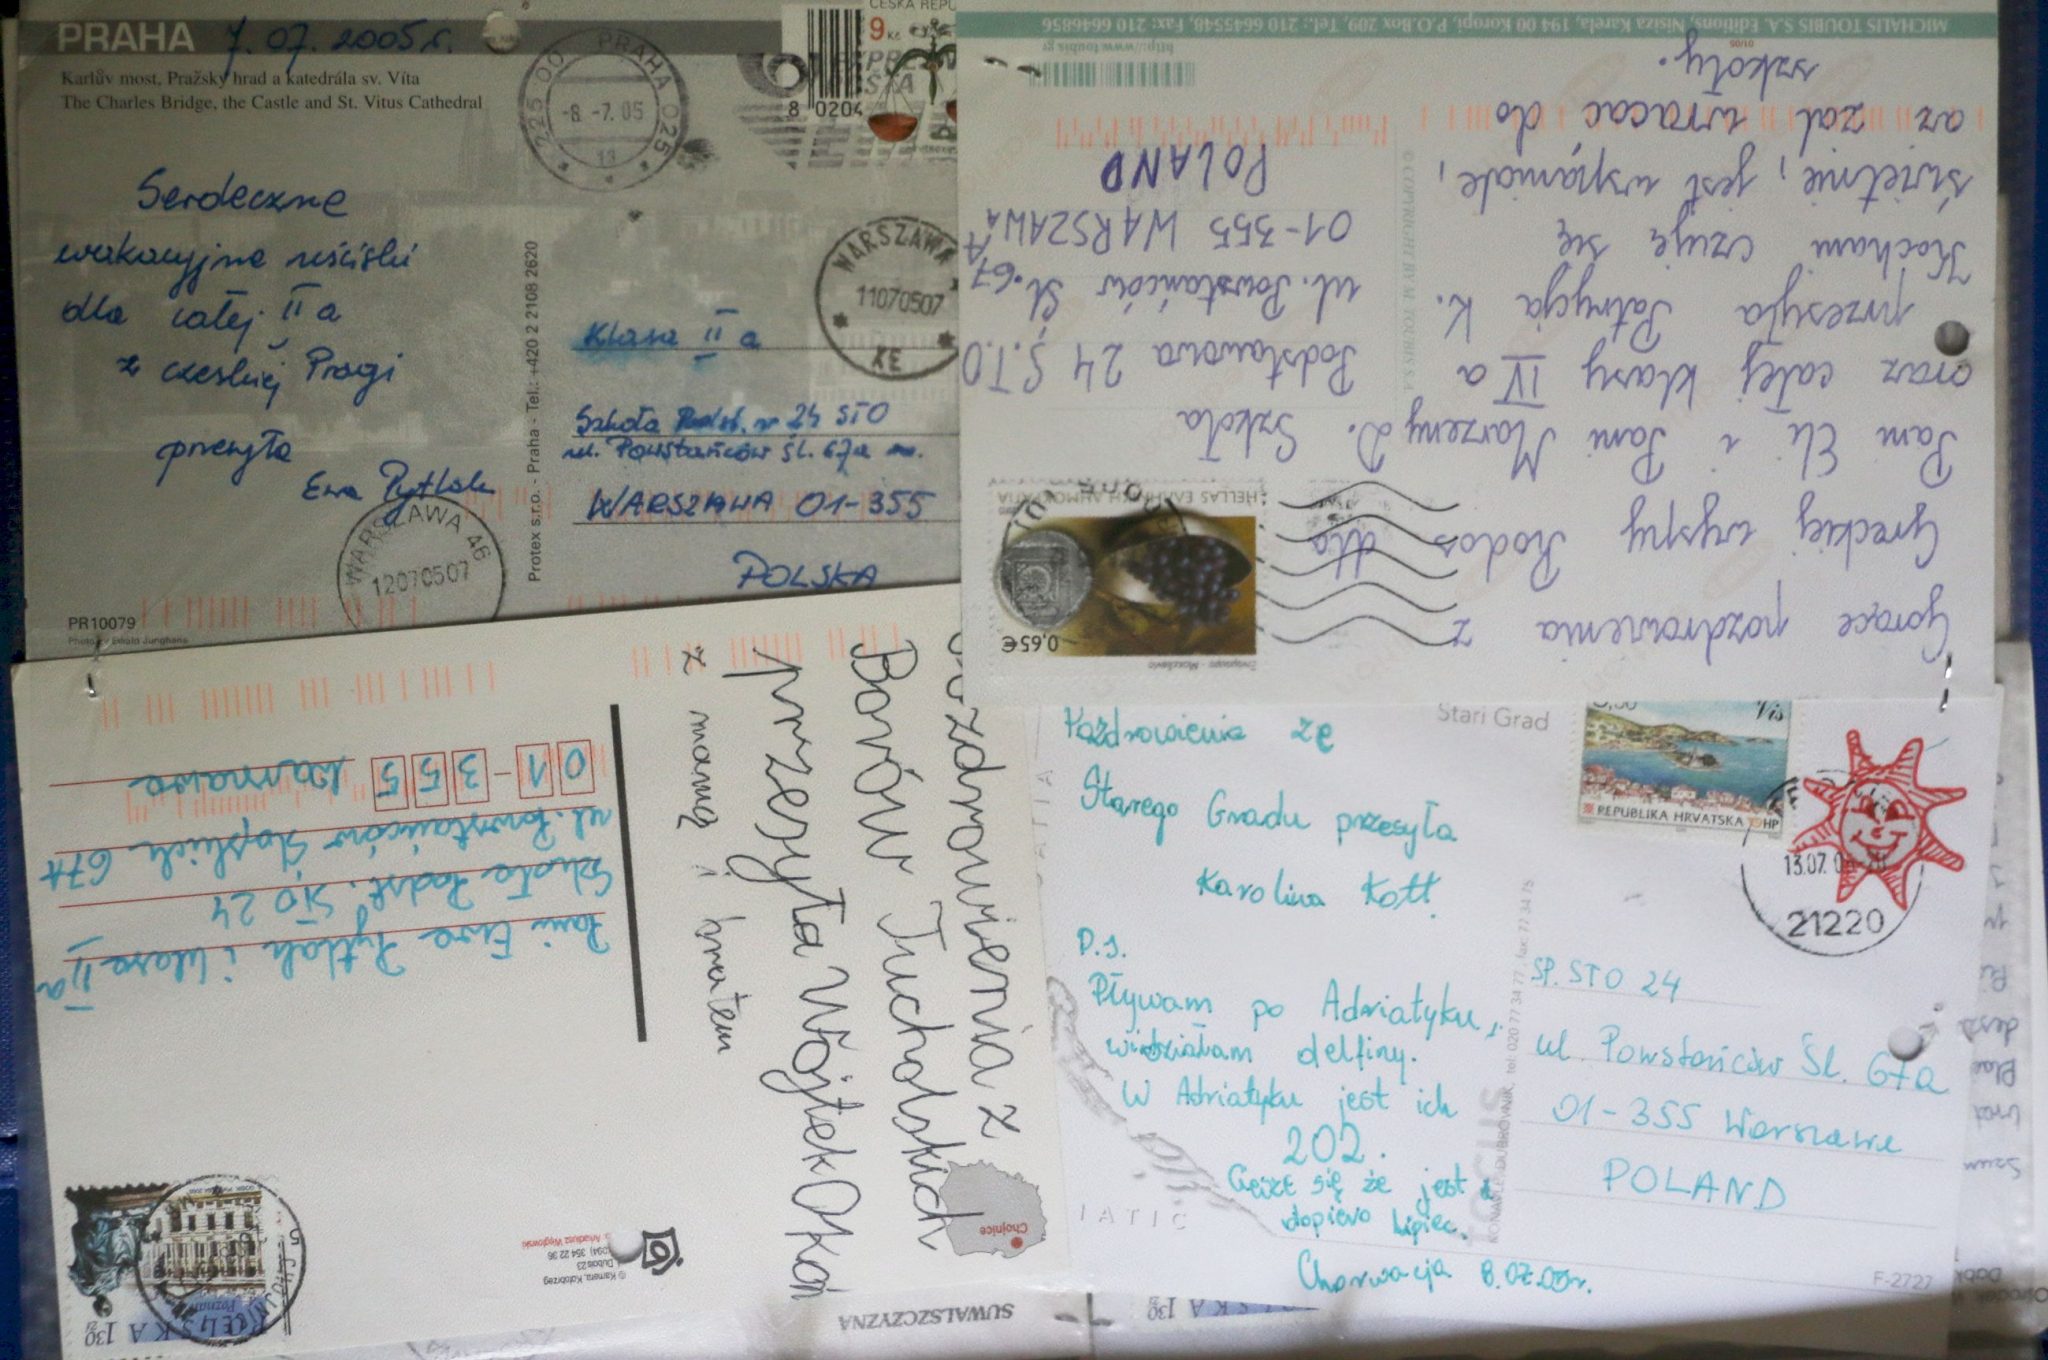 PRAHA 7.07.2005r.
Karlův most, Pražský hrad a katedrála sv. Víta
The Charles Bridge, the Castle and St. Vitus Cathedral
Serdeczne
wakacyjne uściski
dla całej II a
z czeskiej Pragi
przesyła
Ewa Pytlak
PR10079
Photo by Ewald Junghans
Protex s.r.o. - Praha - Tel.: +420 2 2108 2620
225 00 PRAHA 025
-8.-7.05
13
ČESKÁ REPU
9 Kč
8 0204
WARSZAWA
11070507
XE
Klasa II a
Szkoła Podst. nr 24 STO
ul. Powstańców Śl. 67a
WARSZAWA 01-355
POLSKA
WARSZAWA 46
12070507
MICHALIS TOUBIS S.A. Editions, Nisiza, Karela, 194 00 Koropi, P.O.Box 209, Tel.: 210 6645548, Fax: 210 6646856
http://www.toubis.gr
© COPYRIGHT BY M. TOUBIS S.A.
Gorące pozdrowienia z
Greckiej wyspy Rodos dla
Pani Eli i Pani Marzeny D.
oraz całej klasy IV a
przesyła Patrycja K.
Kocham czuję się
świetnie, jest wspaniale,
aż żal wracać do
szkoły.
HELLAS ΕΛΛΗΝΙΚΗ ΔΗΜΟΚΡΑΤΙΑ
0,65€
Szkoła
Podstawowa 24 S.T.O
ul. Powstańców Śl. 67A
01-355 WARSZAWA
POLAND
Pozdrowienia z
Borów Tucholskich
przesyła Wojtek Okoń
z mamą i bratem
Pani Ewa Pytlak i klasa II a
Szkoła Podst. STO 24
ul. Powstańców Śląskich 67A
01-355 Warszawa
Chojnice
© Kamera, Kołobrzeg
Dubois 23
(094) 354 22 36
Arkadiusz Węglowski
130
Poznań
SUWALSZCZYZNA
Stari Grad
Vis
REPUBLIKA HRVATSKA HP
21220
Pozdrowienia ze
Starego Gradu przesyła
Karolina Kott.
P.S.
Pływam po Adriatyku,
widziałam delfiny.
W Adriatyku jest ich
202.
Cieszę się że jest
dopiero lipiec.
Chorwacja 8.07.05r.
SP. STO 24
ul. Powstańców Śl. 67a
01-355 Warszawa
POLAND
tel: 020 77 34 77, fax: 77 34 75
F-2727